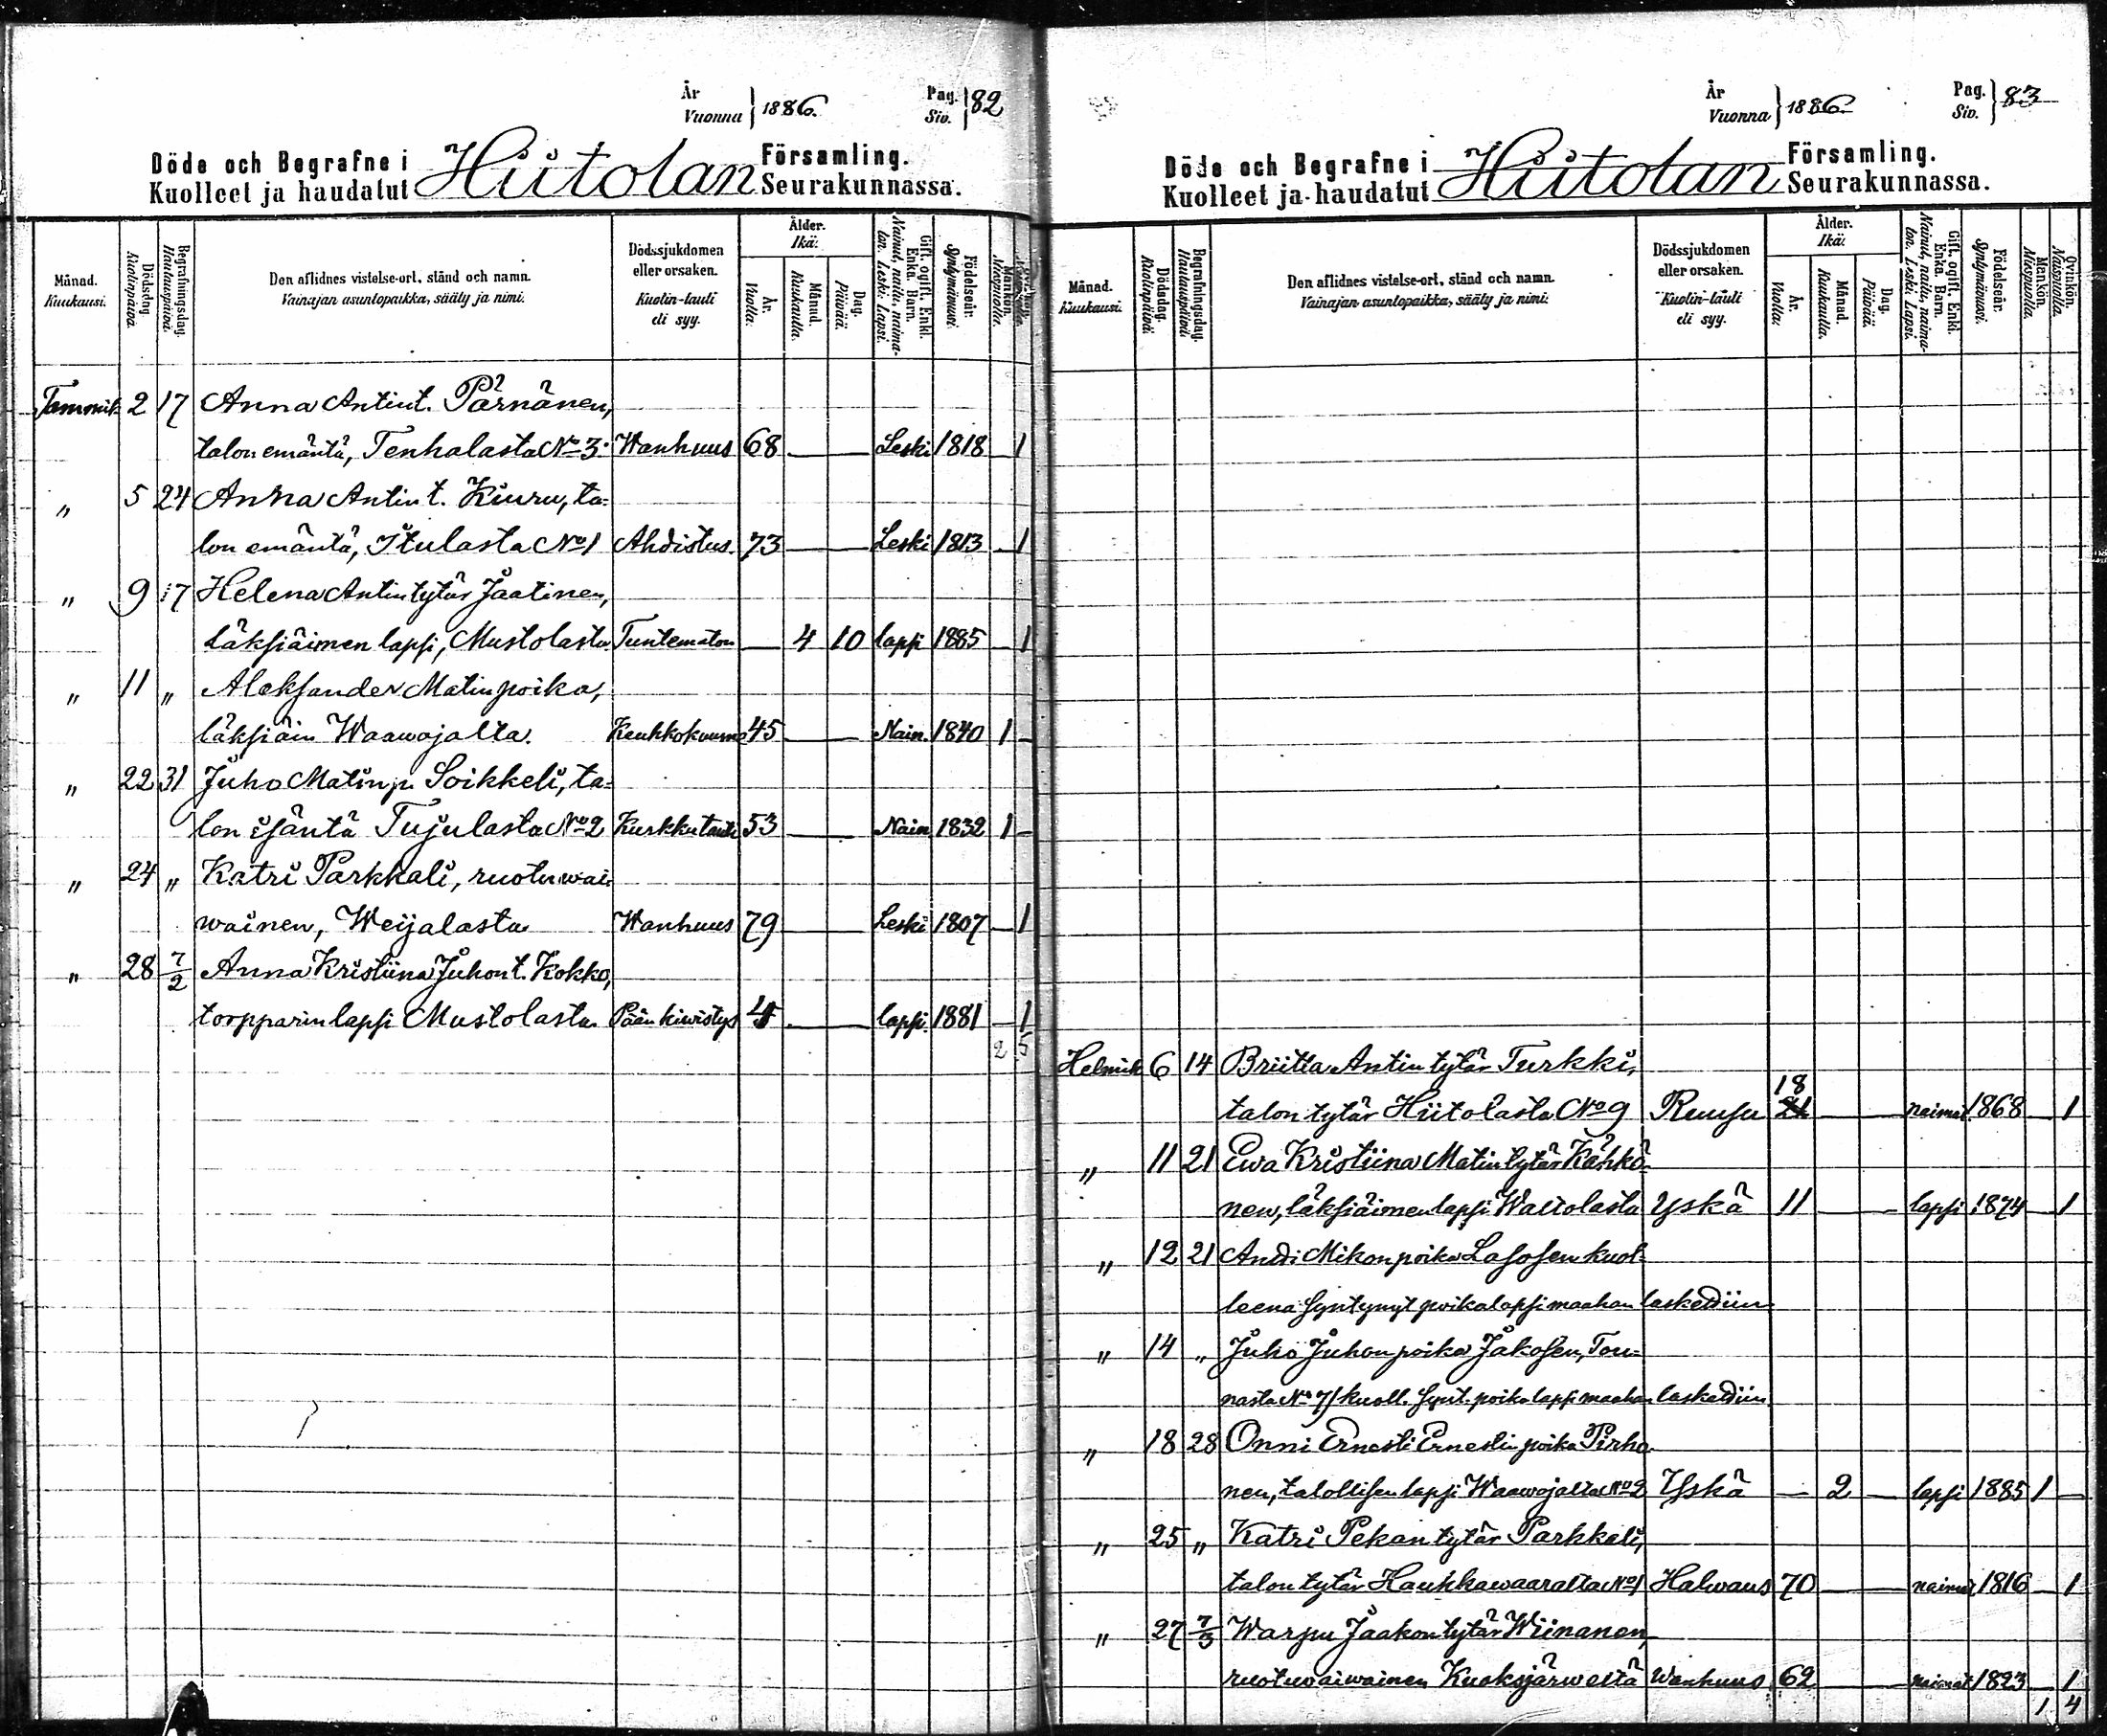 År
Vuonna } 1886.
Pag.
Siv. } 82
Döde och Begrafne i Hiitolan Församling.
Kuolleet ja haudatut Seurakunnassa.
Månad.
Kuukausi.
Dödsdag.
Kuolinpäivä.
Begrafningsdag.
Hautauspäivä.
Den aflidnes vistelse-ort, stånd och namn.
Vainajan asuntopaikka, sääty ja nimi.
Dödssjukdomen
eller orsaken.
Kuolin-tauti
eli syy.
Ålder.
Ikä:
År.
Vuotta.
Månad.
Kuukautta.
Dag.
Päivää.
Gift, ogift, Enkl.
Enka. Barn.
Nainut, naitu, naima-
ton. Leski. Lapsi.
Födelseår.
Syntymävuosi.
Mankön.
Miespuolta.
Tammik. 2 17 Anna Antint. Pärnänen,
talon emäntä, Tenhalasta No 3. Wanhuus 68 — — Leski 1818 — 1
„ 5 24 Anna Antint. Kiuru, ta-
lon emäntä, Itulasta No 1 Ahdistus. 73 — — Leski 1813 — 1
„ 9 17 Helena Antintytär Jaatinen,
läksiäimen lapsi, Mustolasta Tuntematon — 4 10 lapsi 1885 — 1
„ 11 „ Aleksander Matinpoika,
läksiäin Waawojalta. Keuhkokuume 45 — — Nain. 1840 1 —
„ 22 31 Juho Matinp. Soikkeli, ta-
lon isäntä Tujulasta No 2 Kurkkutauti 53 — — Nain. 1832 1 —
„ 24 „ Katri Parkkali, ruotuwai-
wainen, Weijalasta Wanhuus 79 — — Leski 1807 — 1
„ 28 7/2 Anna Kristiina Juhont. Kokko,
torpparin lapsi Mustolasta. Päänkiwistys 4 — — lapsi 1881 — 1
2 5
År
Vuonna } 1886.
Pag.
Siv. } 83
Döde och Begrafne i Hiitolan Församling.
Kuolleet ja haudatut Seurakunnassa.
Månad.
Kuukausi.
Dödsdag.
Kuolinpäivä.
Begrafningsdag.
Hautauspäivä.
Den aflidnes vistelse-ort, stånd och namn.
Vainajan asuntopaikka, sääty ja nimi.
Dödssjukdomen
eller orsaken.
Kuolin-tauti
eli syy.
Ålder.
Ikä:
År.
Vuotta.
Månad.
Kuukautta.
Dag.
Päivää.
Gift, ogift, Enkl.
Enka. Barn.
Nainut, naitu, naima-
ton. Leski. Lapsi.
Födelseår.
Syntymävuosi.
Mankön.
Miespuolta.
Qvinkön.
Naispuolta.
Helmik. 6 14 Briitta Antintytär Turkki,
18
talon tytär Hiitolasta No 9 Ruusu 21 — — naimat. 1868 — 1
„ 11 21 Ewa Kristiina Matintytär Kähkö-
nen, läksiäimen lapsi Waltolasta Yskä 11 — — lapsi 1874 — 1
„ 12 21 Andi Mikonpoika Lasosen kuol-
leena syntynyt poikalapsi maahan laskettiin
„ 14 „ Juho Juhonpoika Jakosen, Tou-
nasta No 7/ kuoll. synt. poikalapsi maahan laskettiin
„ 18 28 Onni Ernesti Ernestinpoika Pirho-
nen, talollisen lapsi Waawojalta No 2 Yskä — 2 — lapsi 1885 1 —
„ 25 „ Katri Pekantytär Parkkali,
talon tytär Haukkawaaralta No 1 Halwaus 70 — — naimat. 1816 — 1
„ 27 7/3 Warpu Jaakontytär Wiinanen,
ruotuwaiwainen Kuoksjärweltä Wanhuus 62 — — naimat. 1823 — 1
1 4